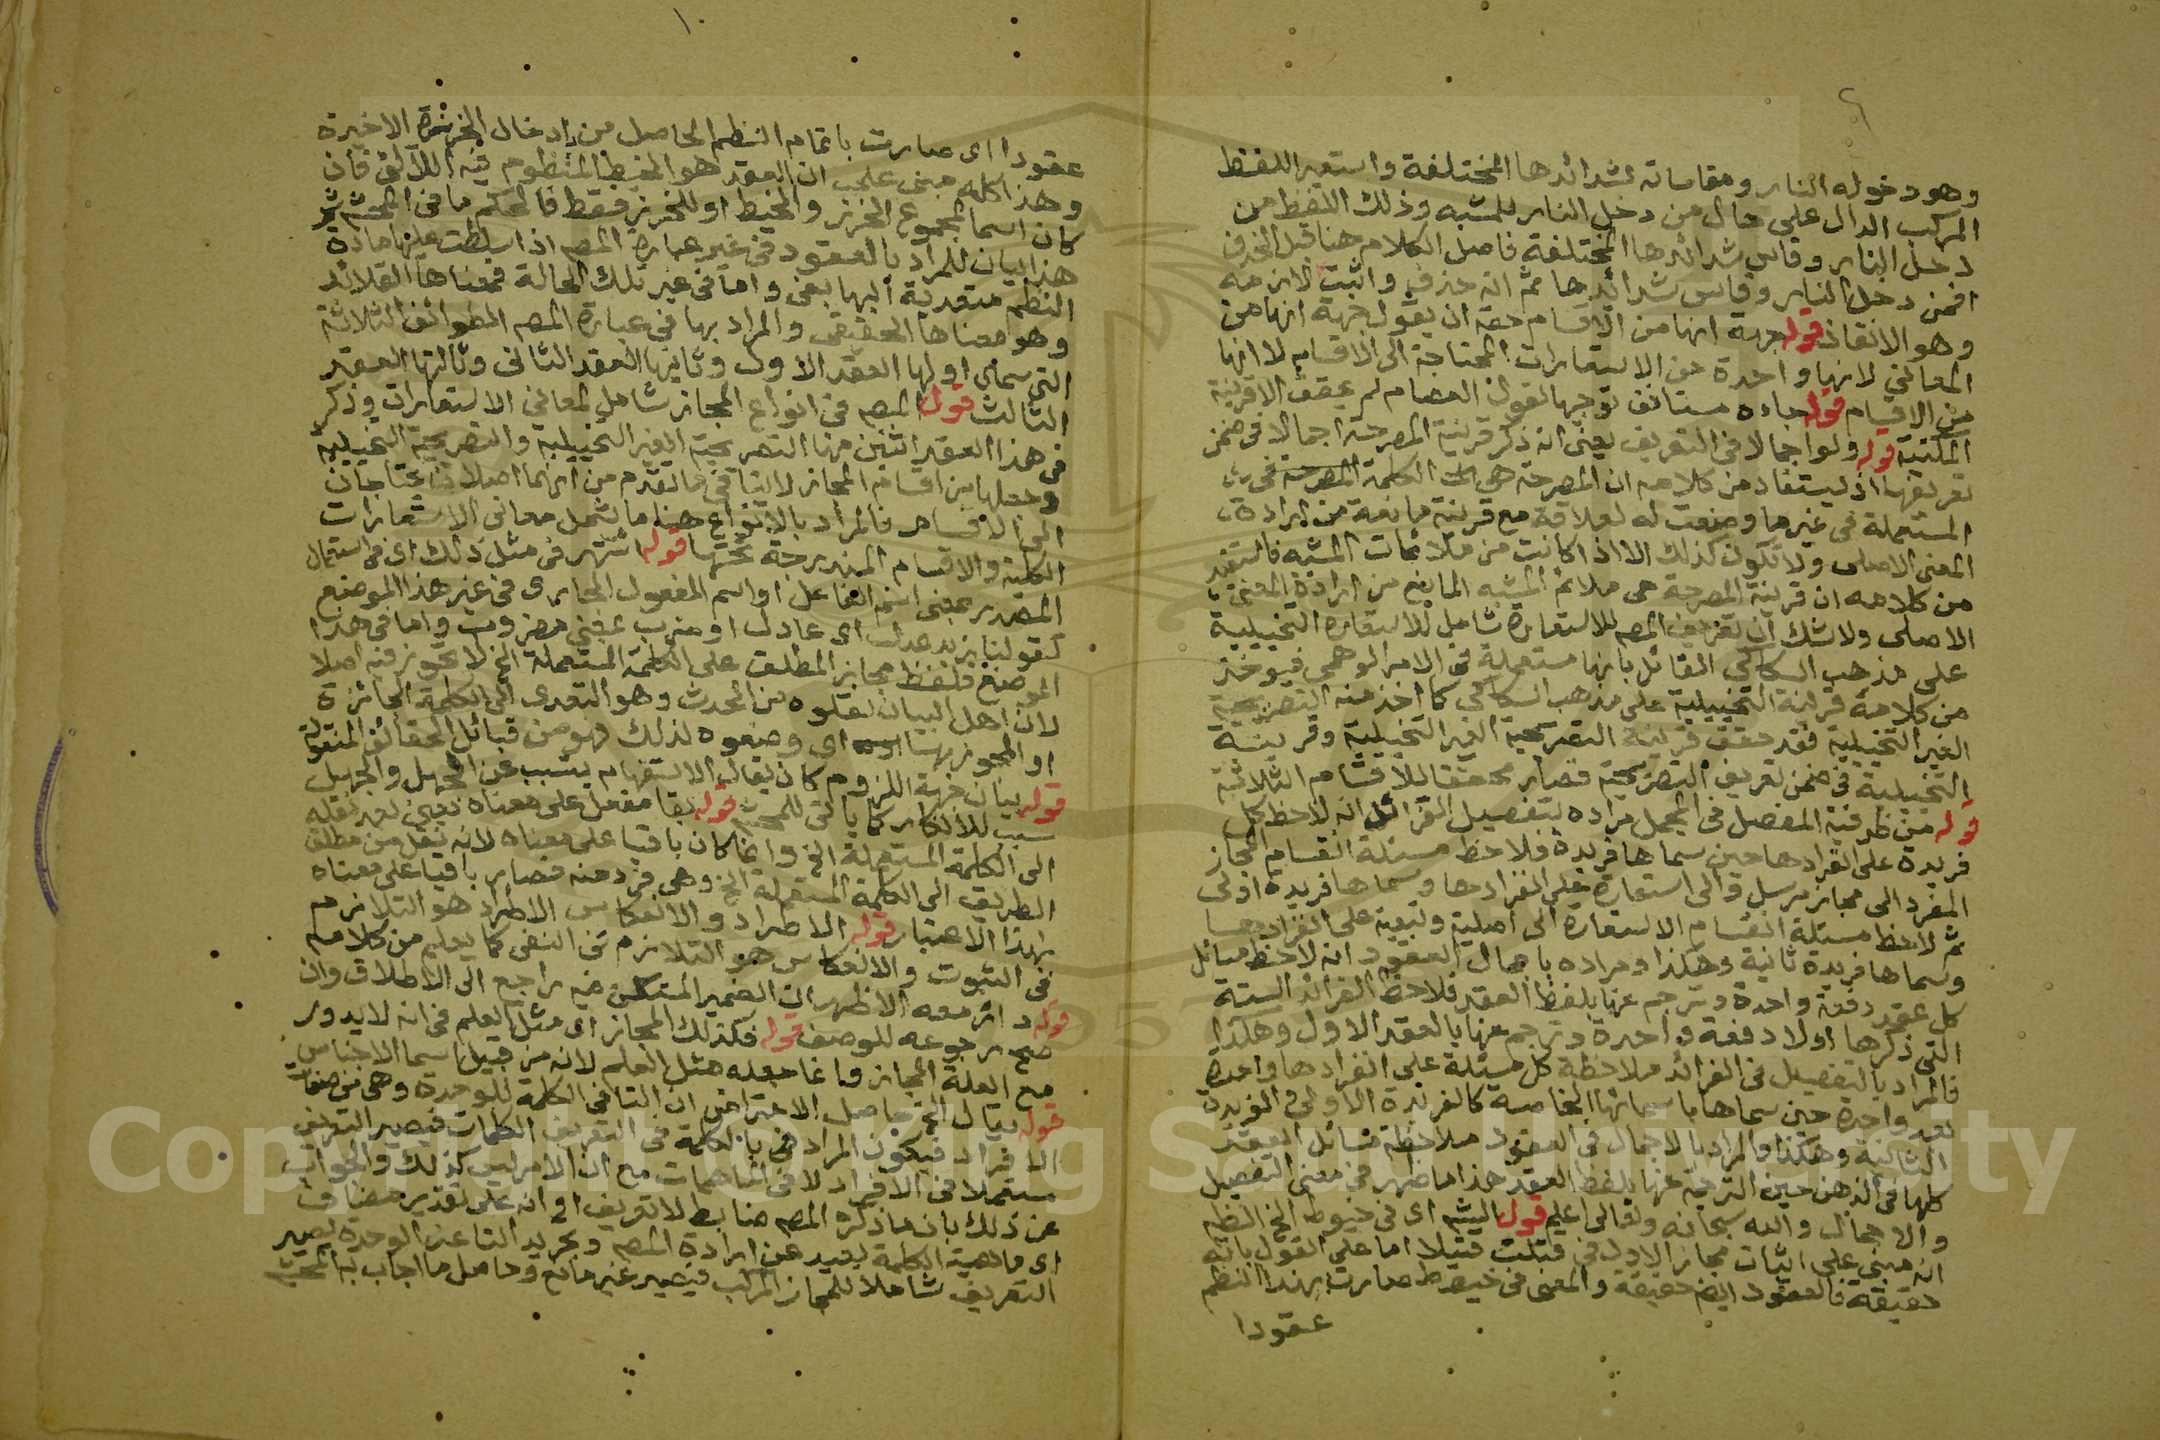 ٩
وهو دخوله النار ومقاساته لشدائدها المختلفة واستعير اللفظ
المركب الدال على حال من دخل النار للمشبه وذلك اللفظ من
دخل النار وقاس شدائدها المختلفة فاصل الكلام هنا قبل الحذف
افمن دخل النار وقاس شدائدها ثم انه حذف واثبت لازمه
وهو الانقاذ قوله جهة انها من الاقسام حقه ان يقول جهة انها من
المعاني لانها واحدة من الاستعارات المحتاجة الى الاقسام لا انها
من الاقسام قوله جاءه مستانف توجيها لقول العصام لم يحقق الا قرينة
المكنية قوله ولو اجمالا في التعريف يعني انه ذكر قرينة المصرحة اجمالا في ضمن
تعريفها اذ يستفاد من كلامه ان المصرحة هي الكلمة المصرحة في
المستعملة في غير ما وضعت له لعلاقة مع قرينة مانعة من ارادة
المعنى الاصلى ولا تكون كذلك الا اذا كانت من ملائمات المشبه فاستفيد
من كلامه ان قرينة المصرحة هي ملائم المشبه المانع من ارادة المعنى
الاصلى ولا شك ان تعريف المصم للاستعارة شامل للاستعارة التخييلية
على مذهب السكاكي القائل بانها مستعملة في الامر الوهمي فيوخذ
من كلامه قرينة التخييلية على مذهب السكاكي كما اخذ منه التصريحية
الغير التخييلية فقد حقق قرينة التصريحية الغير التخييلية وقرينة
التخييلية في ضمن تعريف التصريحية فصار محققا للاقسام الثلاثة
قوله من ظرفية المفصل في المجمل مراده بتفصيل الفرائد انه لاحظ كل
فريدة على انفرادها حين سماها فريدة فلاحظ مسئلة انقسام المجاز
المفرد الى مجاز مرسل والى استعارة على انفرادها وسماها فريدة اولى
ثم لاحظ مسئلة انقسام الاستعارة الى اصلية وتبعية على انفرادهما
وسماها فريدة ثانية وهكذا ومراده باجمال العقود انه لاحظ مسائل
كل عقد دفعة واحدة وترجم عنها بلفظ العقد فلاحظ الفرائد الستة
التي ذكرها اولا دفعة واحدة وترجم عنها بالعقد الاول وهكذا
فالمراد بالتفصيل في الفرائد ملاحظة كل مسئلة على انفرادها واحدة
بعد واحدة حين سماها باسمائها الخاصة كالفريدة الاولى والفريدة
الثانية وهكذا والمراد بالاجمال في العقود ملاحظة مسائل العقد
كلها في الذهن حين الترجمة عنها بلفظ العقد هذا ما ظهر في معنى التفصيل
والاجمال والله سبحانه وتعالى اعلم قول الشم اى في خيوط الخ النظم
انه مبنى على اثبات مجاز الاول في قتلت قتيلا اما على القول بانه
حقيقة فالعقود ايضم حقيقة والمعنى في خيوط صارت بهذا النظم
عقودا
١٠
عقودا اى صارت باتمام النظم الحاصل من ادخال الخرزة الاخيرة
وهذا كله مبنى على ان العقد هو الخيط المنظوم فيه اللآلئ فان
كان اسما لمجموع الخرز والخيط او للخرز فقط فالحكم ما في المحشى ثم
هذا بيان للمراد بالعقود في غير عبارة المصم اذا سلطت عليها مادة
النظم متعدية اليها بفى واما في غير تلك الحالة فمعناها القلائد
وهو معناها الحقيقى والمراد بها في عبارة المصم الطوائف الثلاثة
التي سمى اولها العقد الاول وثانيها العقد الثاني وثالثها العقد
الثالث قول المصم في انواع المجاز شامل لمعاني الاستعارات وذكر
في هذا العقد اثنين منها التصريحية الغير التخييلية والتصريحية التخييلية
وجعلها من اقسام المجاز لا ينافي ما تقدم من انهما اصلان محتاجان
الى الاقسام فالمراد بالانواع هنا ما يشمل معاني الاستعارات
الكلية والاقسام المندرجة تحتها قوله اشتهر في مثل ذلك اى في استعمال
المصدر بمعنى اسم الفاعل او اسم المفعول المجازى في غير هذا الموضع
كقولنا زيد عدل اى عادل او ضرب بمعنى مضروب واما في هذا
الموضع فلفظ مجاز المطلق على الكلمة المستعملة الخ لا تجوز فيه اصلا
لان اهل البيان نقلوه من الحدث وهو التعدى الى الكلمة الجائزة
او المجوز بها اى وضعوه لذلك فهو من قبائل الحقائق المنقولة
قوله بيان جهة اللزوم كان يقال الاستفهام يتسبب عن الجهل والجهل
سبب للانكار كما ياتى للمحشى قوله بقا مفعل على معناه يعنى بعد نقله
الى الكلمة المستعملة الخ وانما كان باقيا على معناه لانه نقل من مطلق
الطريق الى الكلمة المستعملة الخ وهي فرد منه فصار باقيا على معناه
بهذا الاعتبار قوله الاطراد والانعكاس الاطراد هو التلازم
في الثبوت والانعكاس هو التلازم في النفى كما يعلم من كلامهم
قوله دائر معه الاظهر ان الضمير المستكن فيه راجع الى الاطلاق وان
صح رجوعه للوصف قوله فكذلك المجاز اى مثل العلم في انه لا يدور
مع العلة المجاز وانما جعله مثل العلم لانه من قبيل اسما الاجناس
قوله يقال الخ حاصل الاعتراض ان التا في الكلمة للوحدة وهى من صفات
الافراد فيكون المراد في بالكلمة في التعريف الكلمات فيصير التعريف
مستعملا في الافراد لا في الماهيات مع ان الامر ليس كذلك والجواب
عن ذلك بان ما ذكره المصم ضابط لا تعريف او انه على تقدير مضاف
اى ماهية الكلمة بعيد عن ارادة المصم وتجريد التا عن الوحدة يصير
التعريف شاملا للمجاز المركب فيصير غير مانع وحاصل ما اجاب به المحشى
Copyright © King Saud University